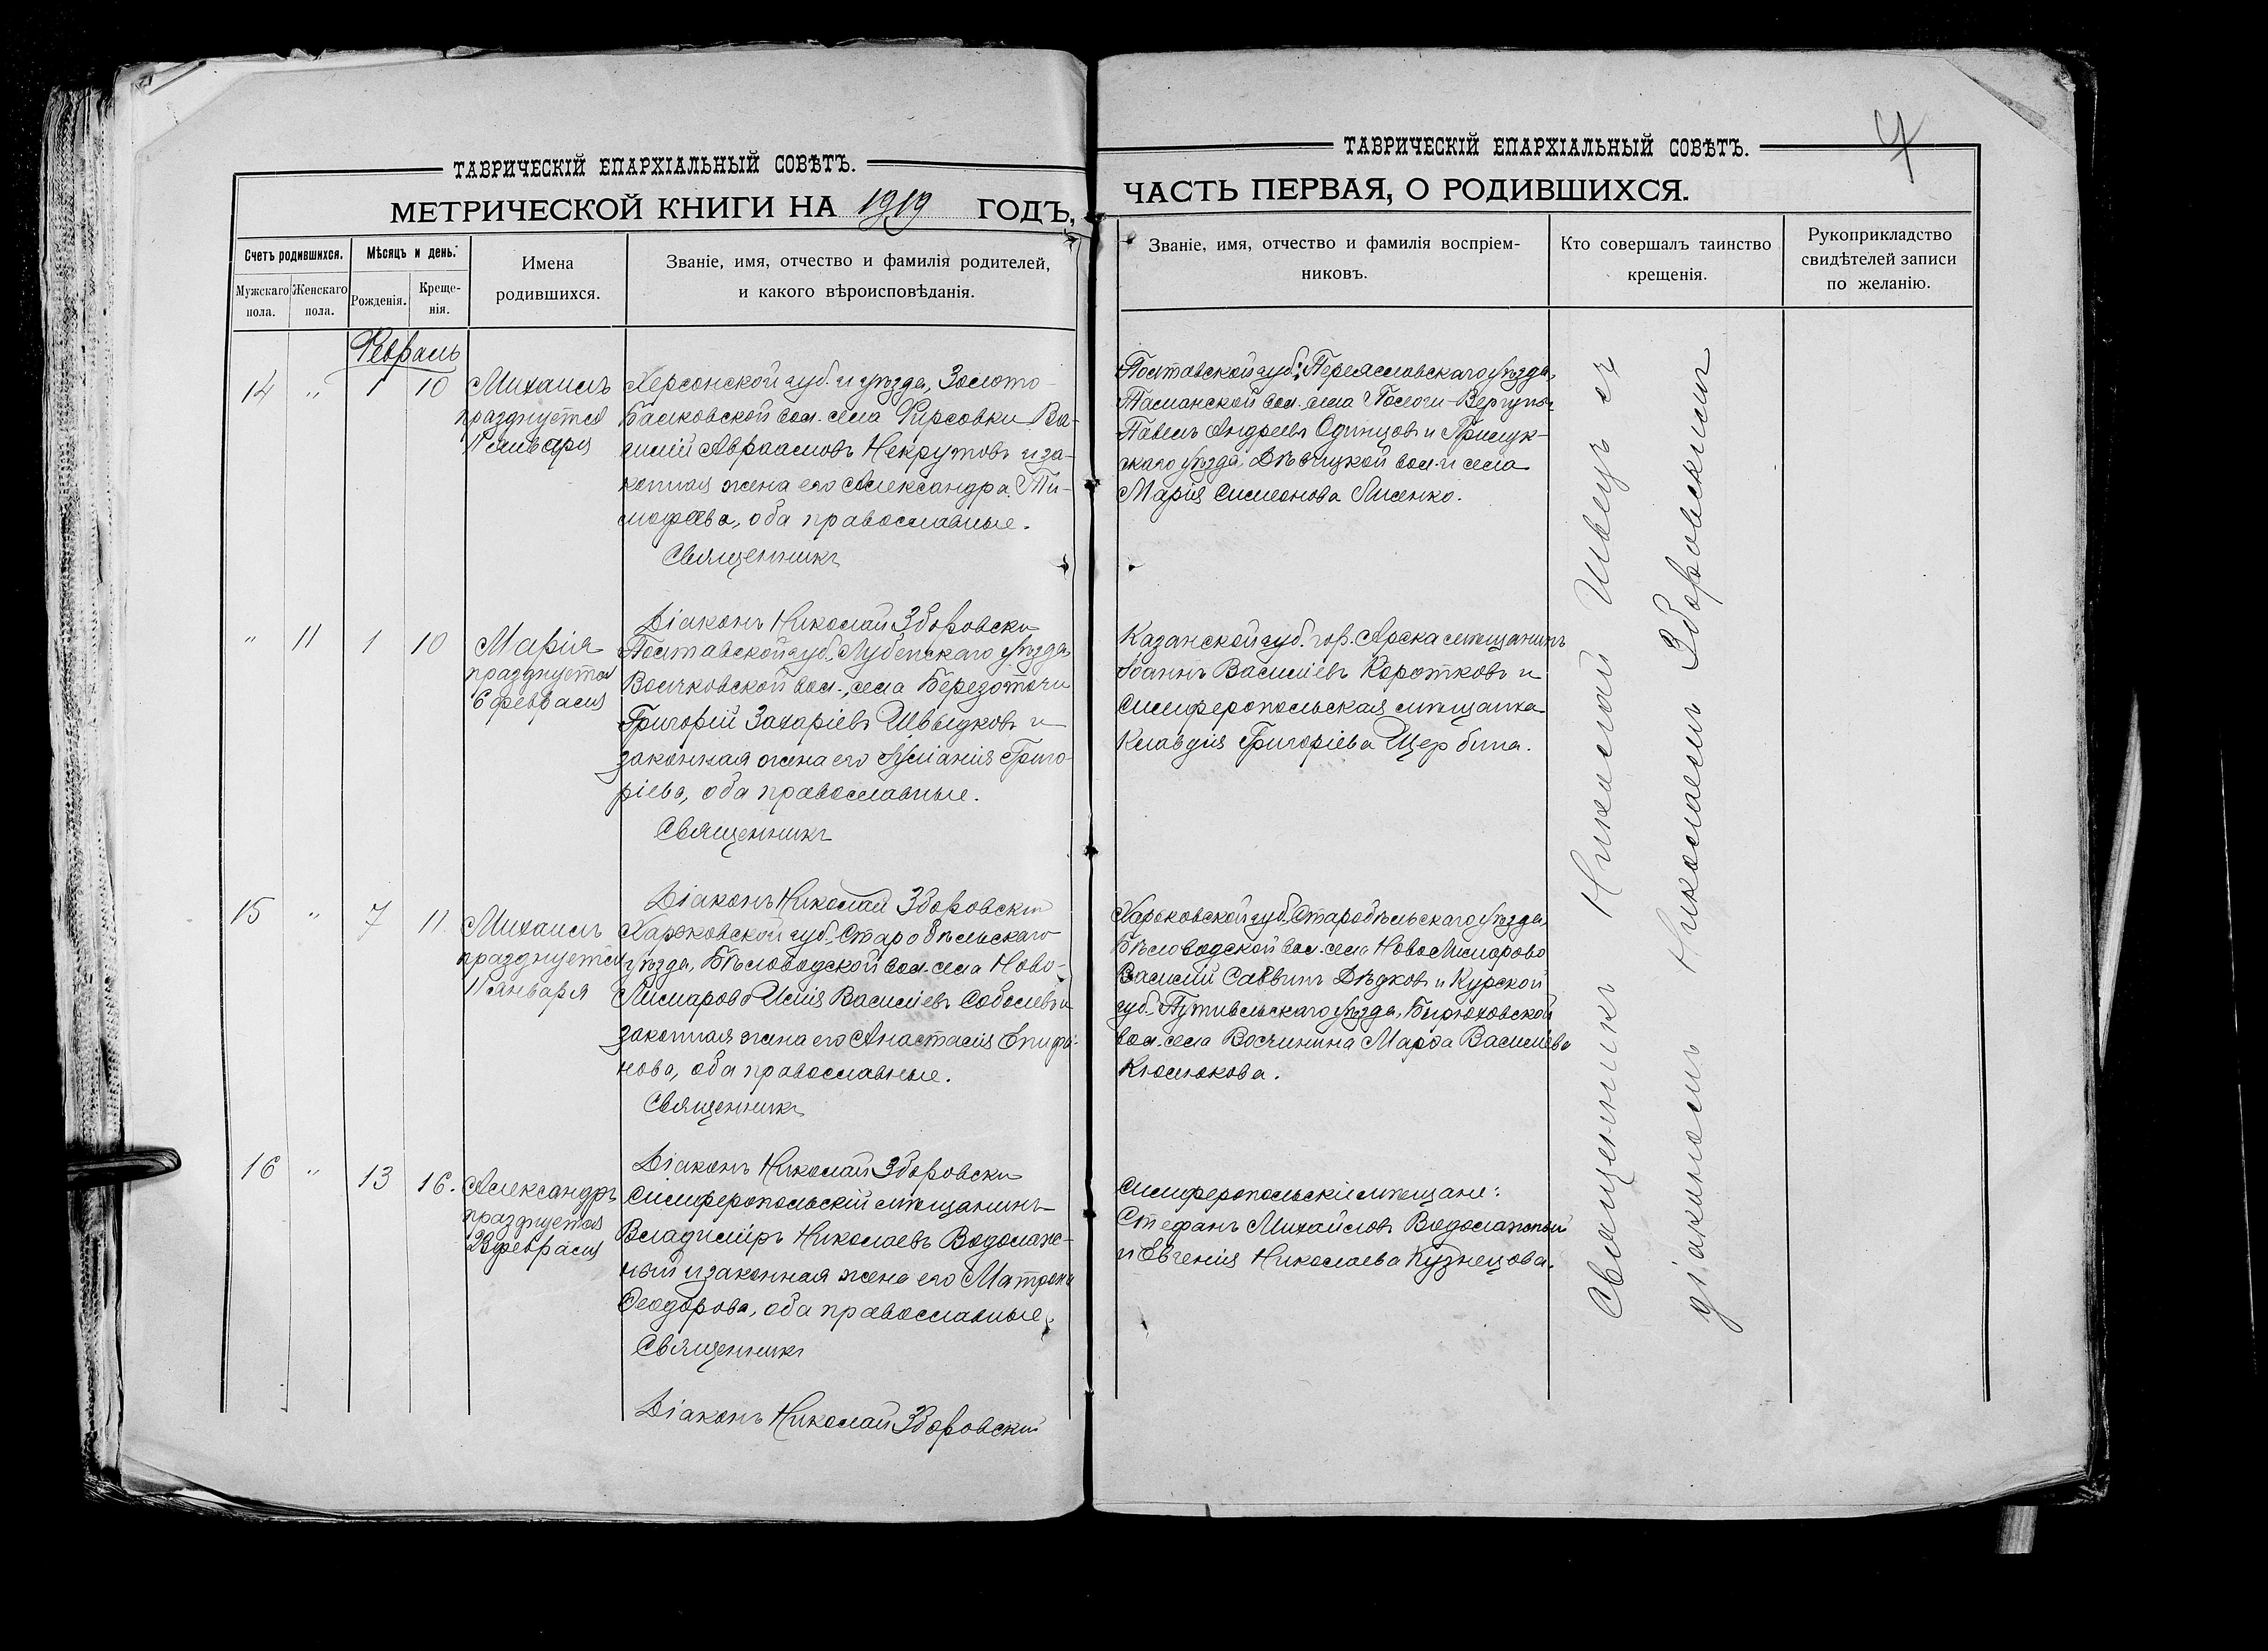 ТАВРИЧЕСКІЙ ЕПАРХІАЛЬНЫЙ СОВѢТЪ.
МЕТРИЧЕСКОЙ КНИГИ НА 1919 ГОДЪ,
Счетъ родившихся.
Мужскаго пола.
Женскаго пола.
Мѣсяцъ и день.
Рожденія.
Креще-
нія.
Имена
родившихся.
Званіе, имя, отчество и фамилія родителей,
и какого вѣроисповѣданія.
Февраль
14 " 1 10
Михаилъ
празднуется
11 января
Херсонской губ. и уѣзда, Золото-
Балковской вол. села Фирсовки Ва-
силій Авраамовъ Некрутовъ и за-
конная жена его Александра Ти-
мофѣева, оба православные.
Священникъ
Діаконъ Николай Зборовски
" 11 1 10
Марія
празднуется
6 февраля
Полтавской губ., Лубенскаго уѣзда,
Волчковской вол., села Березоточи
Григорій Захаріевъ Швыдковъ и
законная жена его Іуліанія Григо-
ріева, оба православные.
Священникъ
Діаконъ Николай Зборовскій
15 " 7 11
Михаилъ
празднуется
11 января
Харьковской губ., Старобѣльскаго
уѣзда, Бѣловодской вол. села Ново-
Лимарово Илія Василіевъ Соболевъ и
законная жена его Анастасія Епифа-
нова, оба православные.
Священникъ
Діаконъ Николай Зборовски
16 " 13 16.
Александръ
празднуется
23 февраля
Симферопольскій мѣщанинъ
Владиміръ Николаевъ Водолаж-
ный и законная жена его Матрона
Ѳеодорова, оба православные.
Священникъ
Діаконъ Николай Зборовскій
ТАВРИЧЕСКІЙ ЕПАРХІАЛЬНЫЙ СОВѢТЪ.
4
ЧАСТЬ ПЕРВАЯ, О РОДИВШИХСЯ.
Званіе, имя, отчество и фамилія воспріем-
никовъ.
Кто совершалъ таинство
крещенія.
Рукоприкладство
свидѣтелей записи
по желанію.
Полтавской губ., Переясловскаго уѣзда,
Ташанской вол. села Пологи-Вергуны
Павелъ Андреевъ Одинцовъ и Прилук-
скаго уѣзда, Дѣвицкой вол. и села
Марія Симеонова Лисенко.
Казанской губ. гор. Арска мѣщанинъ
Іоаннъ Василіевъ Коротковъ и
Симферопольская мѣщанка
Клавдія Григоріева Щербина.
Харьковской губ. Старобѣльскаго уѣзда,
Бѣловодской вол. села Ново Лимарово
Василій Саввинъ Дѣдковъ и Курской
губ. Путивльскаго уѣзда, Бирюховской
вол. села Волчинина Марѳа Василіева
Клюлюкова.
Симферопольскіе мѣщане:
Стефанъ Михайловъ Водолажный
и Евгенія Николаева Кузнецова.
Священникъ Николай Швецъ съ
діакономъ Николаемъ Зборовскимъ